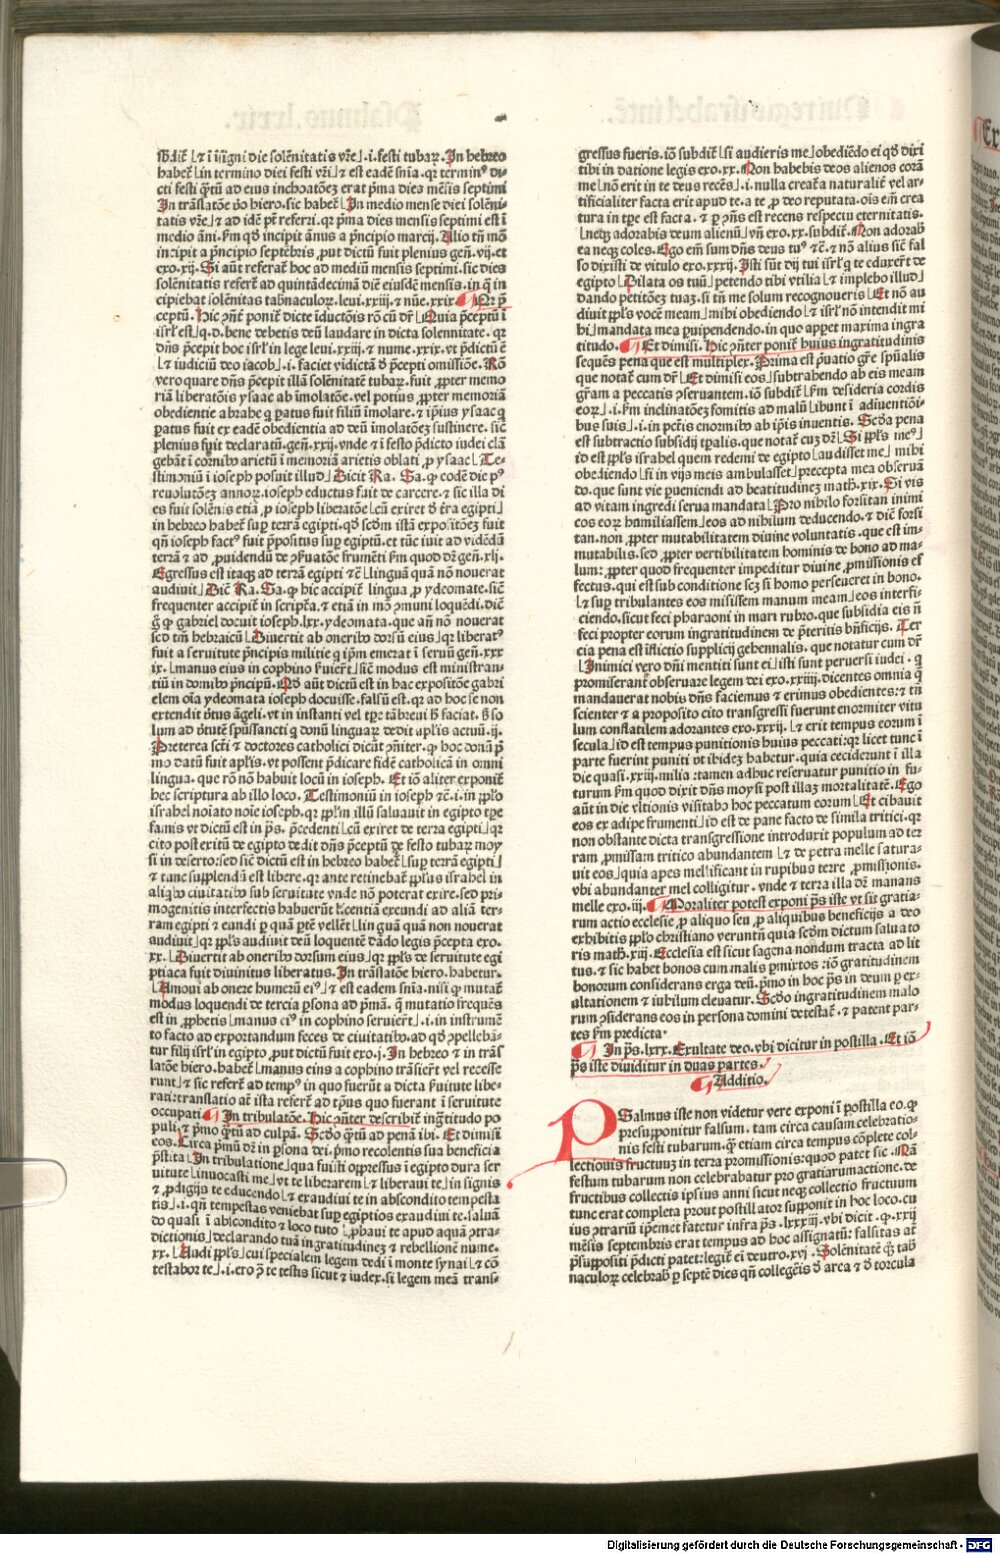 sb̄dit̄ ⁊ ī īsigni die solēnitatis vr̄e .i. festi tubaꝝ. In hebreo
habet̄ in termino diei festi vr̄i ⁊ est eadē snīa. qꝛ terminꝰ di-
cti festi q̄tū ad eius inchoatōeꝫ erat pͥma dies mēsis septimi
In trāslatōe v̓o hiero. sic habet̄ In medio mense diei solēni-
tatis vr̄e ⁊ ad idē pt̄ referri. qꝛ pͥma dies mensis septimi est ī
medio āni. km̄ qd̓ incipit ānus a pͥncipio marcij. Alio tn̄ mō
incipit a pͥncipio septēbris ꝓut dictū fuit plenius gen̄. vij. et
exo. xij. Si aūt referat̄ hoc ad mediū mensis septimi. sic dies
solēnitatis refert̄ ad quintādecimā diē eiusdē mensis. in q̄ in
cipiebat solēnitas tab̓naculoꝝ. leui. xxiij. ⁊ nūe. xxix. Qꝛ p̄
ceptū. Hic ꝯn̄t̄ ponit̄ dicte īductōis rō cū dr̄ Quia p̄ceptū ī
isrl̓ est .q. d. bene debetis deū laudare in dicta solennitate. qꝛ
dn̄s p̄cepit hoc isrl̓ in lege leui. xxiij. ⁊ nume. xxix. vt p̄dictū ē
⁊ iudiciū deo iacob .i. faciet vīdictā d̓ p̄cepti omissiōe. Rō
vero quare dn̄s p̄cepit illā solēnitatē tubaꝝ. fuit ꝓpter memo
riā liberatōis ysaac ab īmolatōe. vel potius ꝓpter memoriā
obedientie abrabe q̄ paratus fuit filiū īmolare. ⁊ ip̄ius ysaac q̄
paratus fuit ex eadē obedientia ad deū īmolatōeꝫ sustinere. sic̄
plenius fuit declaratū. gen̄. xxij. vnde ⁊ ī festo p̄dicto iudei clā
gebāt ī cornibꝰ arietū ī memoriā arietis oblati ꝓ ysaac Te-
stimoniū ī ioseph posuit illud Dicit Ra. Sa. ꝙ eodē die pꝰ
reuolutōeꝫ annoꝝ. ioseph eductus fuit de carcere. ⁊ sic illa di
es fuit solēnis etiā ꝓ ioseph liberatōe cū exiret d̓ t̓ra egipti
in hebreo habet̄ sup̄ terrā egipti. qd̓ scd̄m istā expositōeꝫ fuit
qn̄ ioseph factꝰ fuit p̄positus sup̄ egiptū. et tūc iuit ad vidēdū
terrā ⁊ ad ꝓuidendū de ꝯseruatōe frumēti km̄ quod dꝛ̄ gen̄. xlj.
Egressus est itaqꝫ ad terrā egipti ⁊c̄ linguā quā nō nouerat
audiuit Dic̄ Ra. Sa. ꝙ hic accipit̄ lingua ꝓ ydeomate. sic̄
frequenter accipit̄ in scriptͣa. ⁊ etiā in mō ꝯmuni loquēdi. dic̄
g̊ ꝙ gabriel docuit ioseph. lxx. ydeomata. que an̄ nō nouerat
sed tm̄ hebraicū Diuertit ab oneribꝰ dorsū eius qꝛ liberatꝰ
fuit a seruitute pͥncipis militie q̄ ip̄m emerat ī seruū gen̄. xxx
ix. manus eius in cophino ẜuier̄t sic̄ modus est ministran-
tiū in domibꝰ pͥncipū. Qd̓ aūt dictū est in hac expositōe gabri
elem oīa ydeomata ioseph docuisse. falsū est. qꝛ ad hoc se non
extendit v̓tus āgeli. vt in instanti vel tp̄e tābreui h̓ faciat. B so
lum ad v̓tutē sp̄ūssancti q̄ donū linguaꝝ dedit apl̓is actuū. ij.
Preterea scti ⁊ doctores catholici dicūt ꝯn̄iter. ꝙ hoc donū pͥ
mo datū fuit apl̓is. vt possent p̄dicare fidē catholicā in omni
lingua. que rō nō habuit locū in ioseph. Et iō aliter exponit̄
hec scriptura ab illo loco. Testimoniū in ioseph ⁊c̄. i. in ꝓplo
israhel noīato noīe ioseph. qꝛ ꝓpl̓m illū saluauit in egipto tp̄e
famis vt dictū est in ps̄. p̄cedenti cū exiret de terra egipti qꝛ
cito post exitū de egipto dedit dn̄s p̄ceptū de festo tubaꝝ moy
si in deserto: sed sic̄ dictū est in hebreo habet̄ sup̄ terrā egipti
⁊ tunc supplendū est libere. qꝛ ante retinebat̄ ꝓpl̓us israhel in
aliqͣbꝰ ciuitatibꝰ sub seruitute vnde nō poterat exire. sed pri-
mogenitis interfectis habuerūt licentiā exeundi ad aliā ter-
ram egipti ⁊ eundi p̱ quā pͣtē vellēt linguā quā non nouerat
audiuit qꝛ ꝓpl̓s audiuit deū loquentē dādo legis p̄cepta exo.
xx. Diuertit ab oneribꝰ dorsum eius qꝛ ꝓpl̓s de seruitute egi
ptiaca fuit diuinitus liberatus. In trāslatōe hiero. habetur.
Amoui ab onere humerū eiꝰ ⁊ est eadem snīa. nisi ꝙ mutat̄
modus loquendi de tercia ꝑsona ad pͥmā. q̄ mutatio frequēs
est in ꝓphetis manus eiꝰ in cophino seruier̄t .i. in instrumē
to facto ad exportandum feces de ciuitatibꝰ. ad qd̓ ꝯpelleba-
tur filij isrl̓ in egipto ꝓut dictū fuit exo. j. In hebreo ⁊ in trās
latōe hiero. habet̄ Manus eius a cophino trāsier̄t vel recesse
runt ⁊ sic refert̄ ad tempꝰ in quo fuerūt a dicta ẜuitute libe-
rati: translatio at̄ ista refert̄ ad tp̄us quo fuerant ī seruitute
occupati. In tribulatōe. Hic ꝯn̄ter describit̄ ingͣtitudo po
puli ⁊ pͥmo q̄tū ad culpā. Scd̓o q̄tū ad penā ibi. Et dimisi
eos. Circa pͥmū dꝛ̄ in ꝑsona dei. pͥmo recolentis sua beneficia
p̄stita In tribulatione qua fuisti oppressus ī egipto dura ser
uitute inuocasti me vt te liberarem ⁊ liberaui te in signis
⁊ ꝓdigijs te educendo ⁊ exaudiui te in abscondito tempesta
tis .i. qn̄ tempestas veniebat sup̄ egiptios exaudiui te. saluā
do quasi ī abscondito ⁊ loco tuto ꝓbaui te apud aquā ꝯtra-
dictionis declarando tuā ingratitudineꝫ ⁊ rebellionē nume.
xx. Audi ꝓpl̓s cui specialem legem dedi ī monte synai ⁊ cō
testabor te .i. ero ꝯͣ te testis sicut ⁊ iudex. si legem meā trans-
gressus fueris. iō subdit̄ si audieris me obediēdo ei qd̓ dixi
tibi in datione legis exo. xx. Non habebis deos alienos corā
me nō erit in te deus recēs .i. nulla creat̓a naturalit̓ vel ar-
tificialiter facta erit apud te. a te ꝓ deo reputata. ois em̄ crea
tura in tp̄e est facta. ⁊ ꝑ ꝯn̄s est recens respectu eternitatis.
neqꝫ adorabis deum alienū vn̄ exo. xx. subdit̄. Non adorab̄
ea neqꝫ coles. Ego em̄ sum dn̄s deus tuꝰ ⁊c̄. ⁊ nō alius sic̄ fal
so dixisti de vitulo exo. xxxij. Isti sūt dij tui isrl̓ q̄ te eduxer̄t de
egipto Dilata os tuū petendo tibi vtilia ⁊ implebo illud
dando petitōeꝫ tuaꝫ. si tn̄ me solum recognoueris Et nō au
diuit ꝓpl̓s vocē meam mihi obediendo ⁊ isrl̓ nō intendit mi
hi mandata mea ꝑuipendendo. in quo apꝑet maxima ingra
titudo. Et dimisi. Hic ꝯn̄ter ponit̄ huius ingratitudinis
sequēs pena que est multiplex. Prima est pͥuatio gr̄e spūalis
que notat̄ cum dr̄ Et dimisi eos subtrahendo ab eis meam
gram a peccatis ꝯseruantem. iō subdit̄ km̄ desideria cordis
eoꝝ .i. km̄ inclinatōeꝫ fomitis ad malū ibunt ī adiuentiōi-
bus suis .i. in pctīs enormibꝰ ab ip̄is inuentis. Scd̓a pena
est subtractio subsidij tꝑalis. que notat̄ cuꝫ dr̄ Si ꝓpl̓s meꝰ
id est ꝓpl̓s israhel quem redemi de egipto audisset me mihi
obediendo si in vijs meis ambulasset precepta mea obseruā
do. que sunt vie ꝑueniendi ad beatitudineꝫ math̄. xix. Si vis
ad vitam ingredi serua mandata Pro nihilo forsitan inimi
cos eoꝝ humiliassem eos ad nihilum deducendo. ⁊ dic̄ forsi
tan. non ꝓpter mutabilitatem diuine voluntatis. que est im-
mutabilis. sed ꝓpter vertibilitatem hominis de bono ad ma-
lum: ꝓpter quod frequenter impeditur diuine ꝓmissionis ef
fectus. qui est sub conditione scꝫ si homo perseueret in bono.
⁊ sup̄ tribulantes eos misissem manum meam eos interfi-
ciendo. sicut feci pharaoni in mari rubro. que subsidia eis n̄
feci propter eorum ingratitudinem de p̄teritis bn̄ficijs. Ter
cia pena est īflictio supplicij gehennalis. que notatur cum dr̄
Inimici vero dn̄i mentiti sunt ei isti sunt peruersi iudei. q̄
promiserant obseruare legem dei exo. xxiiij. dicentes omnia q̄
mandauerat nobis dn̄s faciemus ⁊ erimus obedientes: ⁊ tn̄
scienter ⁊ a proposito cito transgressi fuerunt enormiter vitu
lum conflatilem adorantes exo. xxxij. ⁊ erit tempus eorum ī
secula id est tempus punitionis huius peccati: qꝛ licet tunc ī
parte fuerint puniti vt ibidem habetur. quia ceciderunt ī illa
die quasi. xxiij. milia: tamen adhuc reseruatur punitio in fu-
turum km̄ quod dixit dn̄s moysi post illaꝫ mortalitatē. Ego
aūt in die vltionis visitabo hoc peccatum eorum Et cibauit
eos ex adipe frumenti id est de pane facto de simila tritici. qꝛ
non obstante dicta transgressione introduxit populum ad ter
ram ꝓmissam tritico abundantem ⁊ de petra melle satura-
uit eos quia apes mellificant in rupibus terre ꝓmissionis.
vbi abundanter mel colligitur. vnde ⁊ terra illa dꝛ̄ manans
melle exo. iij. Moraliter potest exponi ps̄ iste vt sit gratia-
rum actio ecclesie ꝓ aliquo seu ꝓ aliquibus beneficijs a deo
exhibitis ꝓplo christiano veruntn̄ quia scd̄m dictum saluato
ris math̄. xiij. Ecclesia est sicut sagena nondum tracta ad lit
tus. ⁊ sic habet bonos cum malis ꝑmixtos: iō gratitudinem
bonorum considerans erga deū. pͥmo in hoc ps̄ in deum ꝑ ex-
ultationem ⁊ iubilum eleuatur. Scd̓o ingratitudinem malo
rum ꝯsiderans eos in persona domini detestat̄. ⁊ patent par-
tes km̄ predicta.
In ps̄. lxx. Exultate deo. vbi dicitur in postilla. Et iō
ps̄ iste diuiditur in duas partes.
Additio.
PSalmus iste non videtur vere exponi ī postilla eo. ꝙ
presupponitur falsum. tam circa causam celebratio
nis festi tubarum. ꝙ etiam circa tempus cōplete col-
lectionis fructuuꝫ in terra promissionis: quod patet sic. Nā
festum tubarum non celebrabatur pro gratiarum actione. de
fructibus collectis ipsius anni sicut neqꝫ collectio fructuum
tunc erat completa prout postillator supponit in hoc loco. cu
ius ꝯtrariū ip̄emet fatetur infra ps̄. lxxxiij. vbi dicit. ꝙ. xxij
mēsis septembris erat tempus ad hoc assignatū: falsitas at̄
p̄suppositi p̄dicti patet: legit̄ ei deutro. xvj. Solēnitatē qꝫ tab̄
naculoꝝ celebrab̄ ꝑ septē dies qn̄ collegēis d̓ area ⁊ d̓ torcula
Digitalisierung gefördert durch die Deutsche Forschungsgemeinschaft - DFG